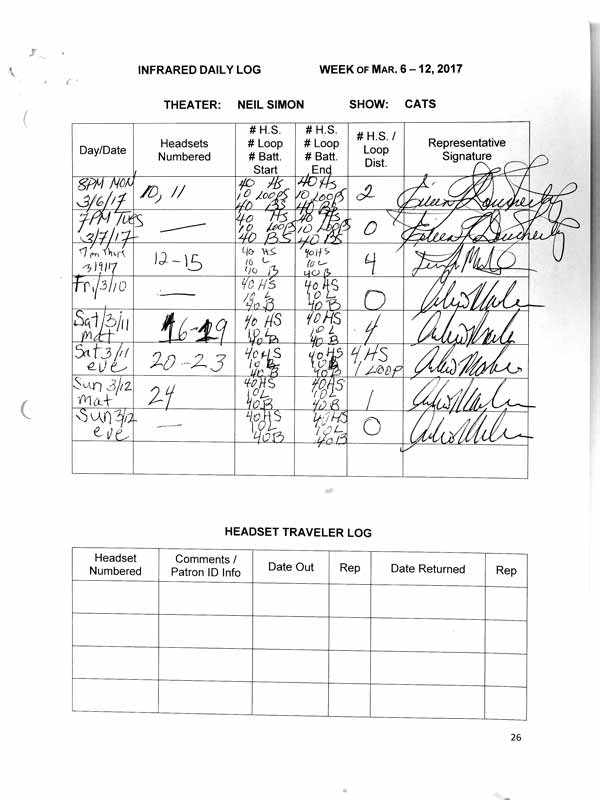 INFRARED DAILY LOG WEEK OF MAR. 6 – 12, 2017
THEATER: NEIL SIMON SHOW: CATS
Day/Date Headsets Numbered # H.S. # Loop # Batt. Start # H.S. # Loop # Batt. End # H.S. / Loop Dist. Representative Signature
8PM MON 3/6/17 10, 11 40 HS 10 LOOPS 40 BS 40 HS 10 LOOPS 40 BS 2 Eileen Dougherty
7PM TUES 3/7/17 — 40 HS 10 LOOPS 40 BS 40 HS 10 LOOPS 40 BS 0 Eileen Dougherty
7pm Thurs 3/9/17 12-15 40 HS 10 L 40 B 40 HS 10 L 40 B 4
Fri/3/10 — 40 HS 10 L 40 B 40 HS 10 L 40 B 0
Sat/3/11 mat 16-19 40 HS 10 L 40 B 40 HS 10 L 40 B 4
Sat 3/11 eve 20-23 40 HS 40 B 40 HS 40 B 4 HS 1 LOOP
Sun 3/12 mat 24 40 HS 10 L 40 B 40 HS 10 L 40 B 1
Sun 3/12 eve — 40 HS 10 L 40 B 40 HS 10 L 40 B 0
HEADSET TRAVELER LOG
Headset Numbered Comments / Patron ID Info Date Out Rep Date Returned Rep
26